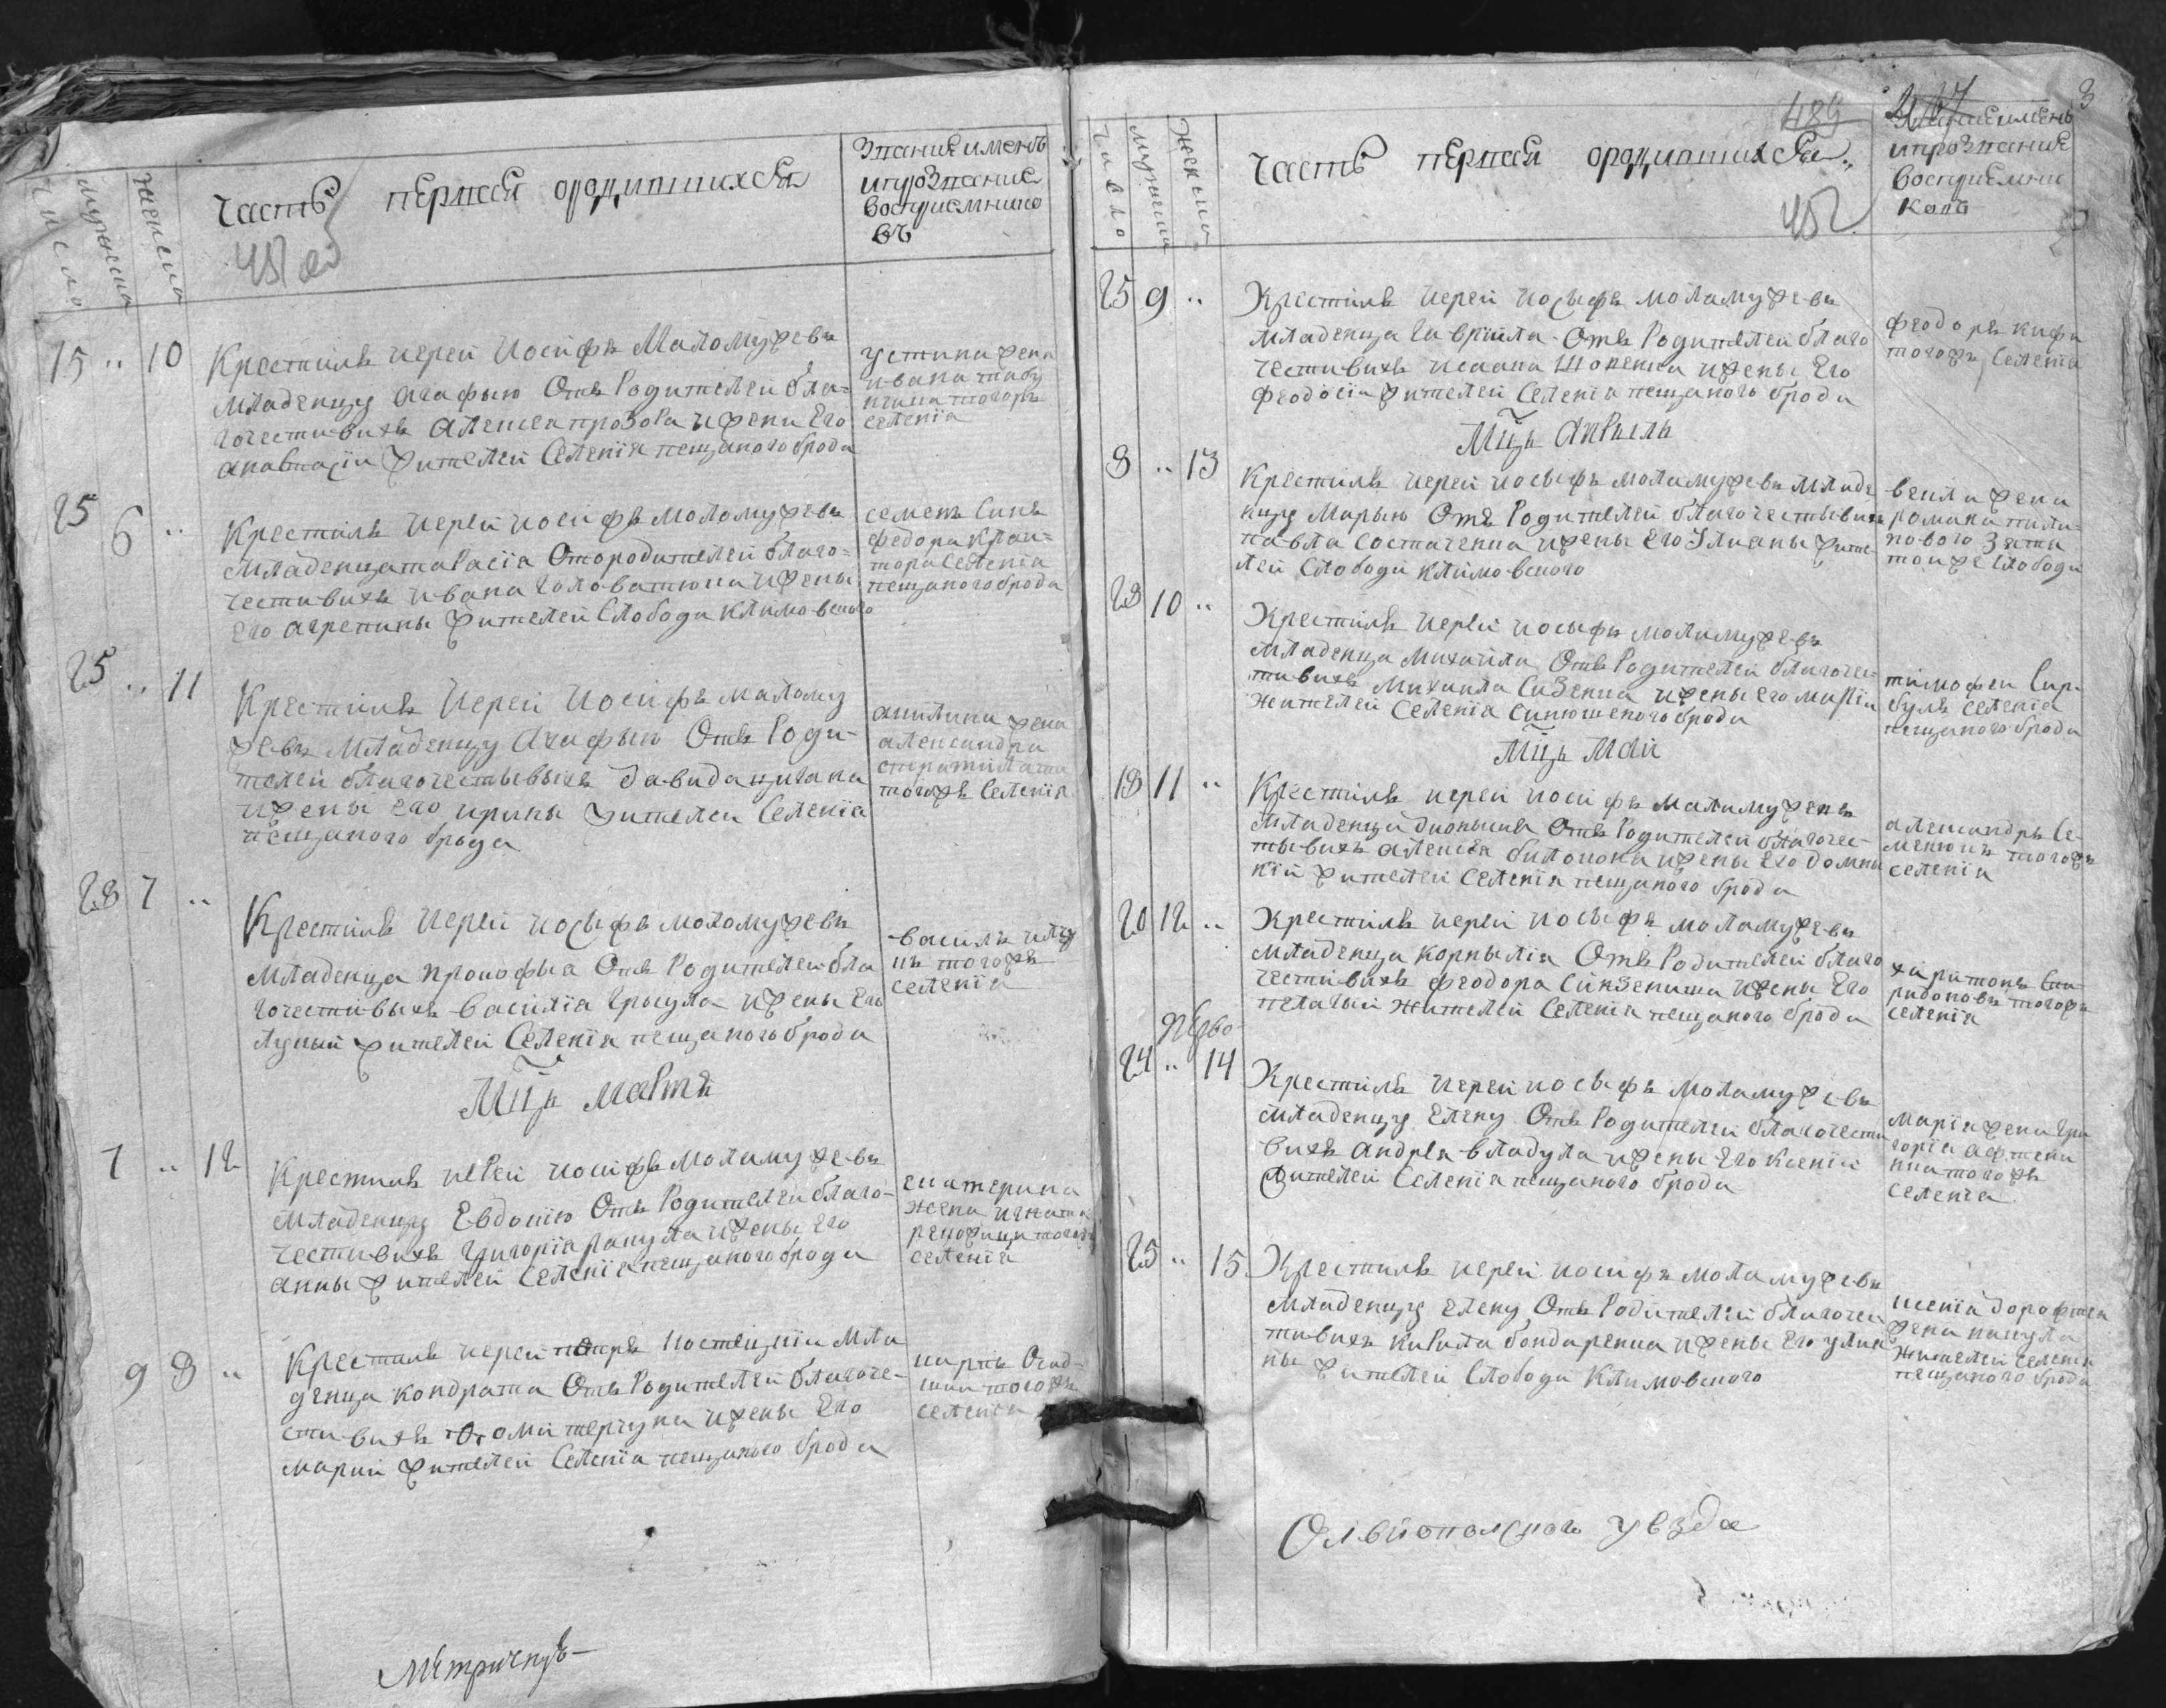 число
мужеска
женска
Часть первая ораждшихся
451 об
Звание именъ
ипрозвание
восприемнико
въ
15 .. 10
Крестилъ иерей Иосифъ Маломужевъ
младенцу Агафию Отъ Родителей бла=
гочестивихъ алексея прозора ижени Его
анастасіи жителей Селенія пещаного брода
устина жена
ивана
того жъ
селенія
25 6 ..
Крестилъ иерей иосифъ моломужевъ
младенца тарасія Отродителей благо=
честивихъ ивана головатюка ижены
Его агрепины жителей Слободи климовского
семенъ Синъ
федора клан=
тора селенія
пещаного брода
25 .. 11
Крестилъ Иерей Иосифъ маламу
жевъ младенцу Агафию Отъ Роди-
телей благочестывыхъ давида цигана
ижены его ирины жителей Селенія
пещаного брода
акилина жена
александра
тогожъ Селенія
28 7 ..
Крестилъ иерей иосыфъ моломужевъ
младенца прокофыя Отъ Родителей бла
гочестивыхъ василія грысула ижены Его
жителей Селенія пещаного брода
василъ
тогожъ
селенія
Мцъ мартъ
7 .. 12
Крестилъ иерей иосифъ моламужевъ
младенцу Евдокию Отъ Родителей благо-
честивихъ григорія рацула ижены Его
анны жителей Селенія пещаного брода
екатерина
жена игната
тогожъ
селенія
9 8 ..
Крестилъ иерей петръ костецкій мла
денца кондрата Отъ Родителей благоче-
стивихъ ижены Его
марии жителей Селенія пещаного брода
карпъ
тогожъ
селенія
Метричнуъ
489
3
число
мужеска
женска
часть первая ораждшихся
452
Званиеименъ
ипрозвание
восприемни
ковъ
25 9 ..
Крестилъ иерей иосыфъ моламужевъ
младенца гаврыила Отъ Родителей благо
честивихъ исаака шопенка ижены Его
феодосіи жителей Селенія пещаного брода
феодоръ
тогожъ селенія
Мцъ Апрыль
8 .. 13
Крестилъ иерей иосыфъ моламужевъ младе
нцу Марыю Отъ Родителей благочестывихъ
павла состаченка ижены Его Улианы жите
лей Слободи климовского
векла жена
романа пили=
пового зятя
тоиже слободи
28 10 ..
Крестилъ иерей иосыфъ моламужевъ
младенца михайла Отъ Родителей благочес=
тивихъ михаила Сизенка ижены его марии
жителей Селенія синюшеного брода
тимофей Сир-
булъ селенія
пещаного брода
Мцъ Маи
18 11 ..
Крестилъ иерей иосифъ маламужевъ
младенца дионысия Отъ Родителей благочес-
тывихъ алексея билоконя ижены Его домны
кіи жителей Селенія пещаного брода
александръ Се-
менюкъ тогожъ
селенія
20 12 ..
Крестилъ иерей иосыфъ моламужевъ
младенца корнылія Отъ Родителей благо
честивихъ феодора Синзенина ижены Его
пелагии жителей Селенія пещаного брода
харитонъ Спи-
ридоновъ тогожъ
селенія
24 .. 14
Крестилъ иерей иосыфъ моламужевъ
младенцу Елену Отъ Родителей благочести
вихъ Андрея владула ижены Его Ксении
жителей Селенія пещаного брода
марія жена гри
горія
тогожъ
селенія
25 .. 15
Крестилъ иерей иосифъ моламужевъ
младенцу Елену Отъ Родителей благочес
тивихъ кирила бондаренка ижены Его улия
ны жителей Слободи Климовского
ксенія дорофтея
жена
жителей селенія
пещаного брода
Ольвиополского уезда